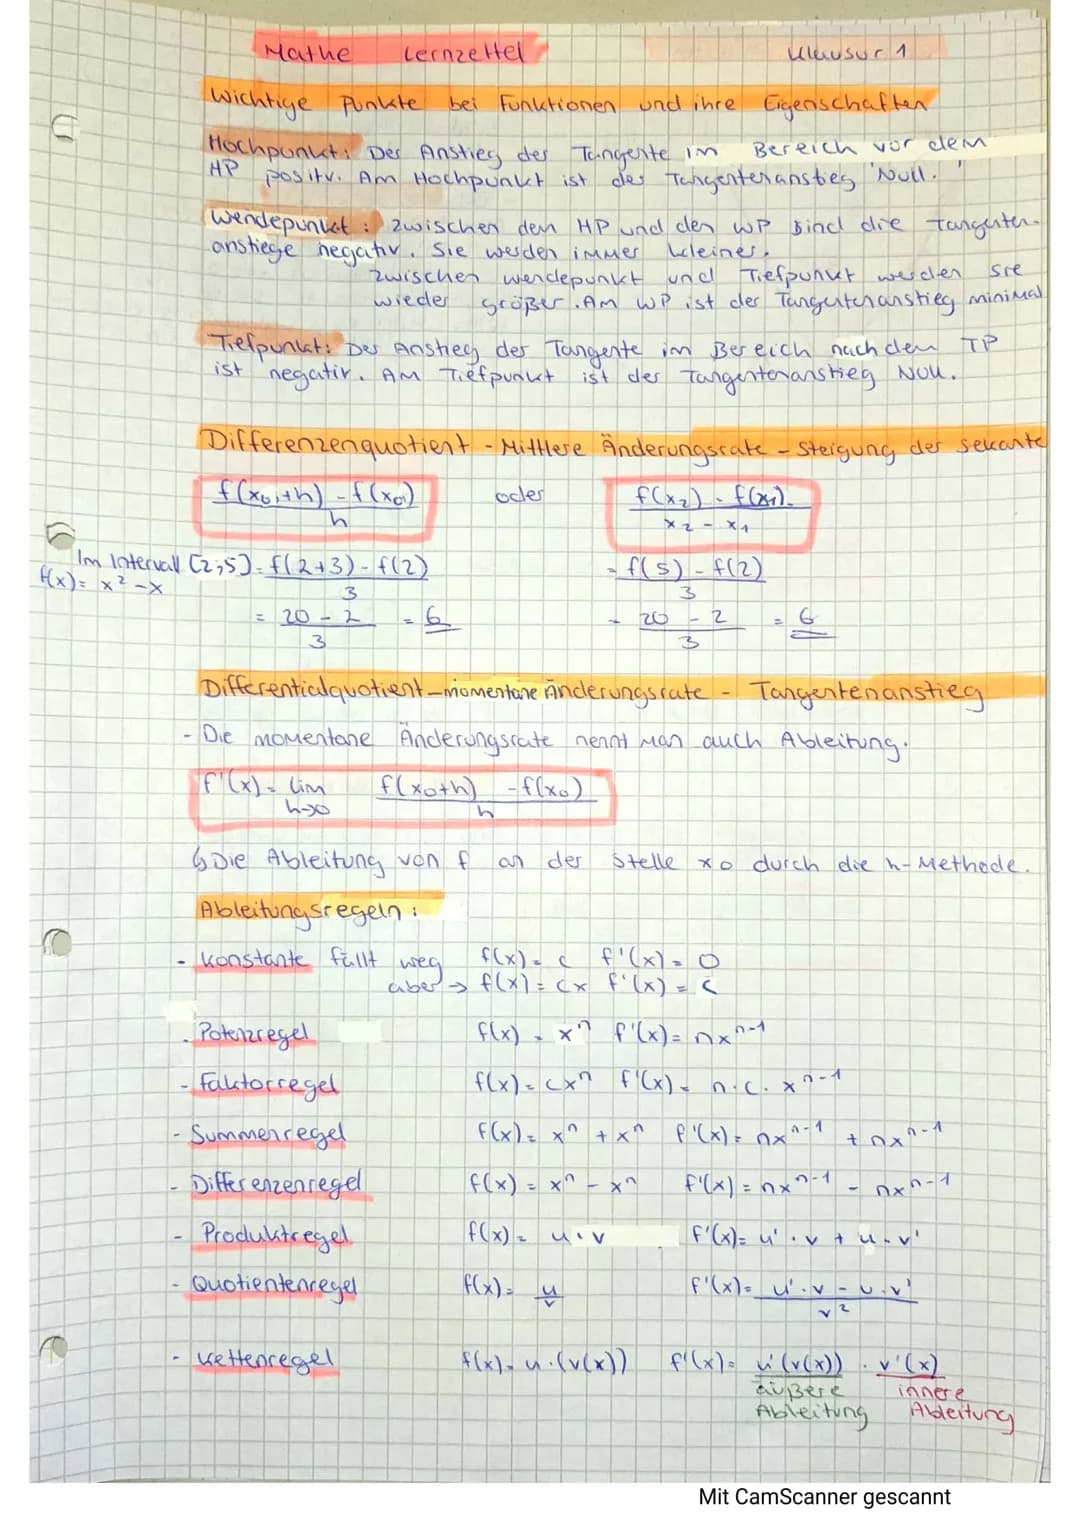 Mathe Lernzettel Klausur 1
Wichtige Punkte bei Funktionen und ihre Eigenschaften
Hochpunkt: Der Anstieg der Tangente im Bereich vor dem
HP positv. Am Hochpunkt ist der Tangentenanstieg Null.
Wendepunkt: Zwischen den HP und den WP sind die Tangenten-
anstiege negativ. Sie werden immer kleiner.
Zwischen Wendepunkt und Tiefpunkt werden sie
wieder größer. Am WP ist der Tangentenanstieg minimal
Tiefpunkt: Der Anstieg der Tangente im Bereich nach dem TP
ist negativ. Am Tiefpunkt ist der Tangentenanstieg Null.
Differenzenquotient - Mittlere Änderungsrate - Steigung der Sekante
f(x₀+h) - f(x₀) oder f(x₂) - f(x₁)
h x₂ - x₁
Im Intervall [2;5] = f(2+3) - f(2) = f(5) - f(2)
f(x) = x² - x 3 3
= 20 - 2 = 6 = 20 - 2 = 6
3 3
Differentialquotient - momentane Änderungsrate - Tangentenanstieg
- Die momentane Änderungsrate nennt man auch Ableitung.
f'(x) = lim f(x₀+h) - f(x₀)
h→0 h
↳ Die Ableitung von f an der Stelle x₀ durch die h-Methode.
Ableitungsregeln:
- Konstante fällt weg f(x) = c f'(x) = 0
aber → f(x) = cx f'(x) = c
- Potenzregel f(x) = xⁿ f'(x) = nxⁿ⁻¹
- Faktorregel f(x) = cxⁿ f'(x) = n·c·xⁿ⁻¹
- Summenregel f(x) = xⁿ + xⁿ f'(x) = nxⁿ⁻¹ + nxⁿ⁻¹
- Differenzenregel f(x) = xⁿ - xⁿ f'(x) = nxⁿ⁻¹ - nxⁿ⁻¹
- Produktregel f(x) = u·v f'(x) = u'·v + u·v'
- Quotientenregel f(x) = u/v f'(x) = u'·v - u·v'
v²
- Kettenregel f(x) = u·(v(x)) f'(x) = u'(v(x)) · v'(x)
äußere innere
Ableitung Ableitung
Mit CamScanner gescannt